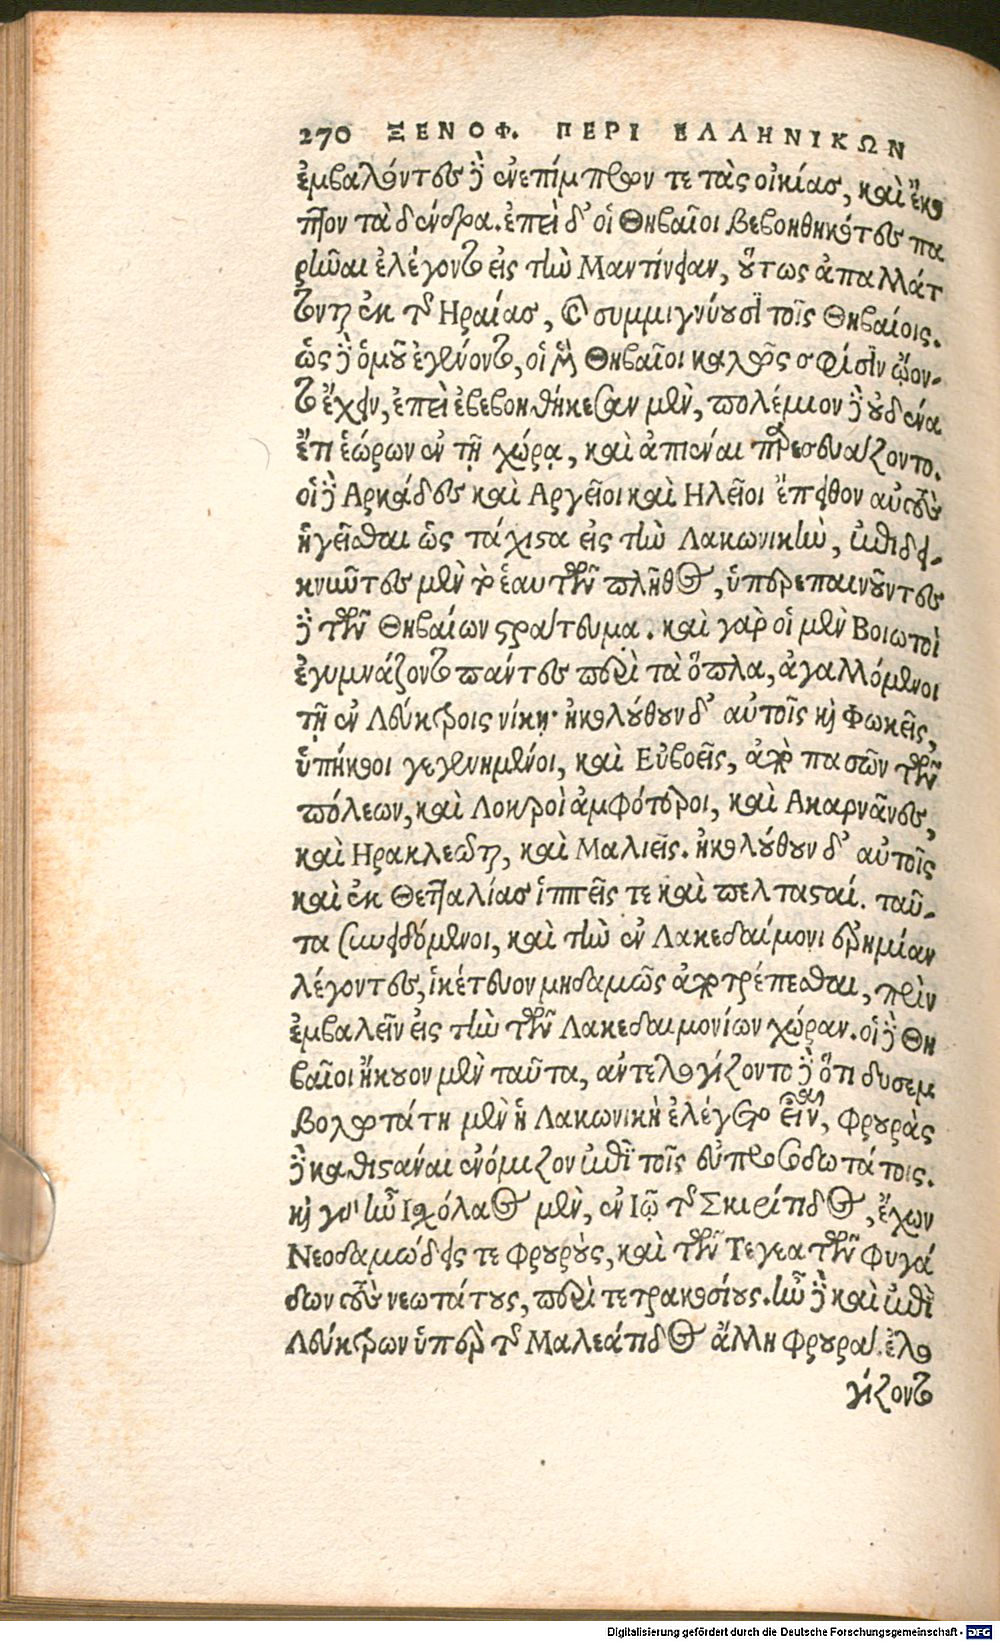 270 ΞΕΝΟΦ. ΠΕΡΙ ΕΛΛΗΝΙΚΩΝ
ἐμβαλόντες δὲ ἐνεπίμπρων τε τὰς οἰκίας, καὶ ἔκο
πτον τὰ δένδρα. ἐπεὶ δ' οἱ Θηβαῖοι βεβοηθηκότες πα
ρῆναι ἐλέγοντο εἰς τὴν Μαντίνειαν, οὕτως ἀπαλλάτ
τονται ἐκ τῆς Ηραίας, καὶ συμμιγνύουσι τοῖς Θηβαίοις.
ὡς δὲ ὁμοῦ ἐγένοντο, οἱ μὲν Θηβαῖοι καλῶς σφίσιν ᾤον-
το ἔχειν, ἐπεὶ ἐβεβοηθήκεσαν μὲν, πολέμιον δὲ οὐδένα
ἔτι ἑώρων ἐν τῇ χώρᾳ, καὶ ἀπιέναι παρεσκυάζοντο.
οἱ δὲ Αρκάδες καὶ Αργεῖοι καὶ Ηλεῖοι ἔπειθον αὐτοὺς
ἡγεῖσθαι ὡς τάχιστα εἰς τὴν Λακωνικὴν, ἐπιδει-
κνιῦτες μὲν τὸ ἑαυτῶν πλῆθος, ὑπερεπαινοῦντες
δὲ τῶν Θηβαίων στράτευμα. καὶ γὰρ οἱ μὲν Βοιωτοὶ
ἐγυμνάζοντο πάντες περὶ τὰ ὅπλα, ἀγαλλόμενοι
τῇ ἐν Λεύκτροις νίκῃ· ἠκολούθουν δ' αὐτοῖς καὶ Φωκεῖς,
ὑπήκοοι γεγενημένοι, καὶ Εὐβοεῖς, ἀπὸ πασῶν τῶν
πόλεων, καὶ Λοκροὶ ἀμφότεροι, καὶ Ακαρνᾶνες,
καὶ Ηρακλεῶται, καὶ Μαλιεῖς. ἠκολούθουν δ' αὐτοῖς
καὶ ἐκ Θετταλίας ἱππεῖς τε καὶ πελτασταί. ταῦ-
τα συνειδόμενοι, καὶ τὴν ἐν Λακεδαίμονι ἐρημίαν
λέγοντες, ἱκέτευον μηδαμῶς ἀποτρέπεσθαι, πρὶν
ἐμβαλεῖν εἰς τὴν τῶν Λακεδαιμονίων χώραν. οἱ δὲ Θη
βαῖοι ἤκουον μὲν ταῦτα, ἀντελογίζοντο δὲ ὅτι δυσεμ
βολωτάτη μὲν ἡ Λακωνικὴ ἐλέγετο εἶναι, φρουρὰς
δὲ καθιστάναι ἐνόμιζον ἐπὶ τοῖς εὐπροσοδωτάτοις.
καὶ γὰρ ἦν Ισχόλαος μὲν, ἐν Ιῷ τῆς Σκιρίτιδος, ἔχων
Νεοδαμώδεις τε φρουροὺς, καὶ τῶν Τεγεατῶν φυγά
δων τοὺς νεωτάτους, περὶ τετρακοσίους. ἦν δὲ καὶ ἐπὶ
Λεύκτρων ὑπὲρ τῆς Μαλεάτιδος ἄλλη φρουρά. ἐλο
γίζοντο
Digitalisierung gefördert durch die Deutsche Forschungsgemeinschaft - DFG